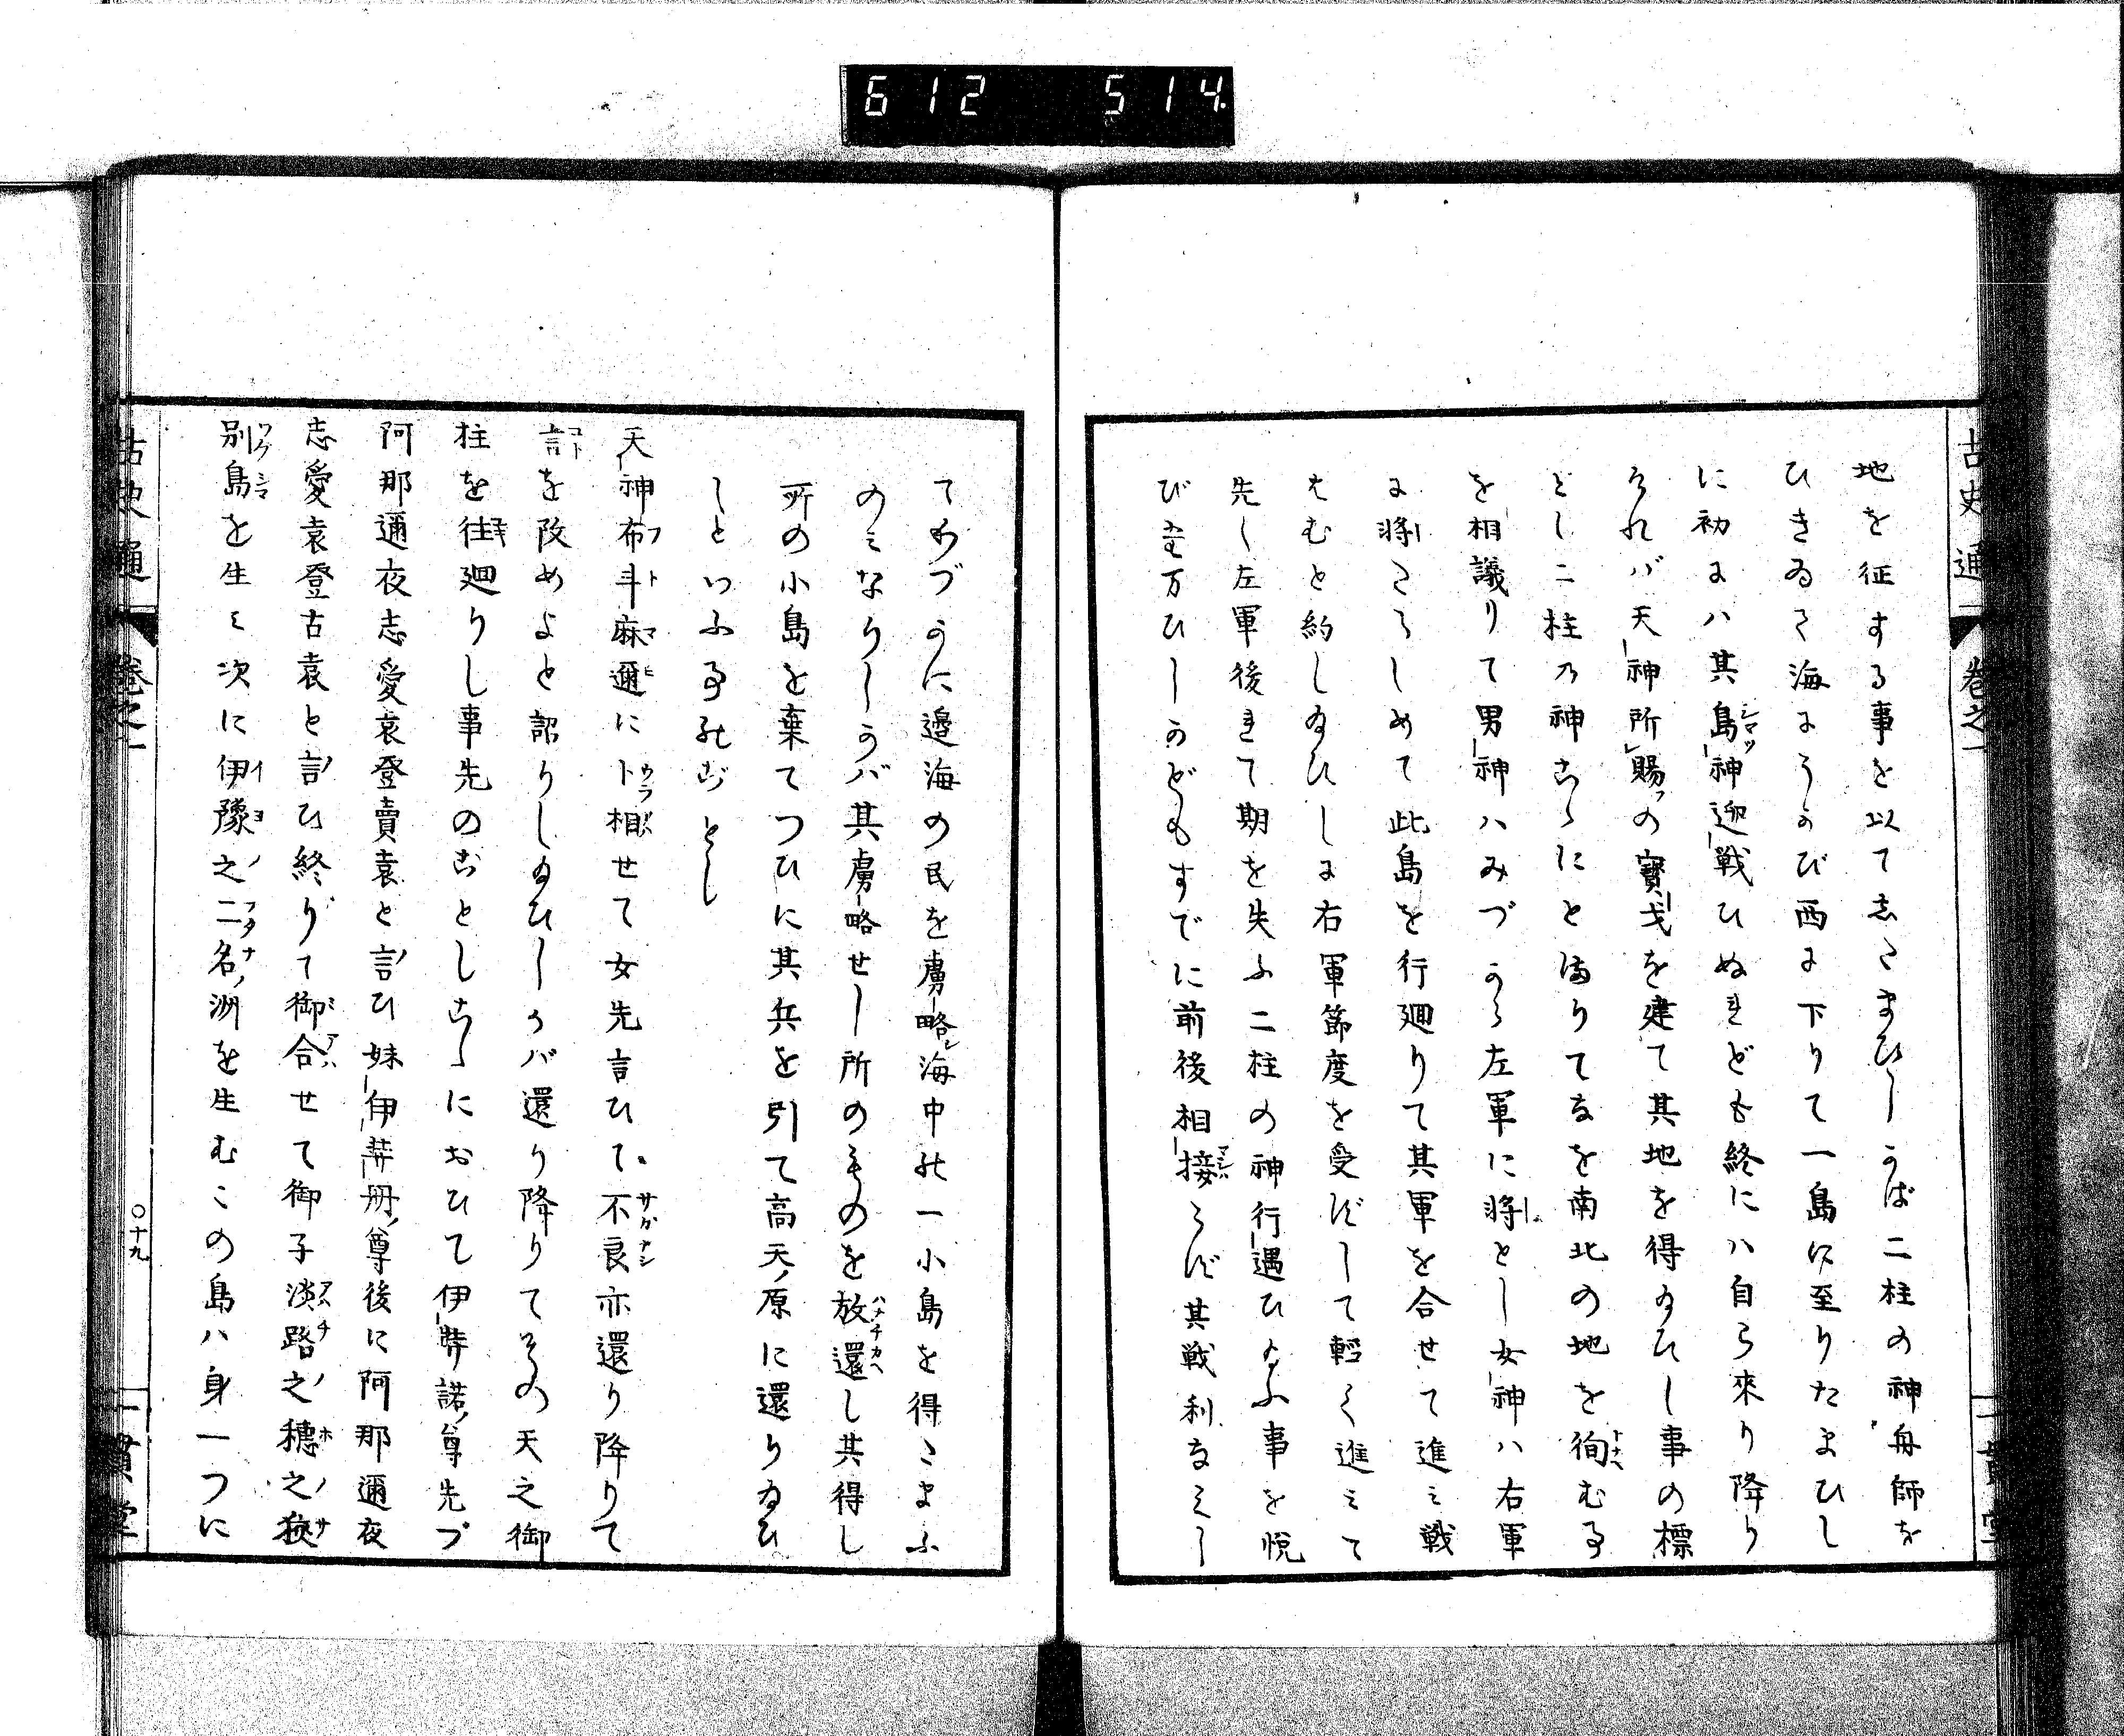 612 514
古史通 卷之一
地を征する事を以てしたまひしかば二柱の神舟師を
ひきゐて海にうかび西に下りて一島に至りたまひし
に初にハ其島神迎戦ひぬれども終にハ自ら來り降り
けれバ天神所賜の寳戈を建て其地を得給ひし事の標
とし二柱乃神こゝにとゞまりてなを南北の地を徇む事
を相議りて男神ハみづから左軍に将とし女神ハ右軍
に将たらしめて此島を行廻りて其軍を合せて進ミ戦
はむと約し給ひしに右軍節度を受ずして輕く進ミて
先し左軍後れて期を失ふ二柱の神行遇ひ給ふ事を悦
び給ひしかどもすでに前後相接らず其戦利なくし
てわづかに邉海の民を虜略海中の一小島を得たまふ
のミなりしかバ其虜略せし所のものを放還し其得し
所の小島を棄てつひに其兵を引て高天原に還り給ひ
しといふ事のごとし
天神布斗麻邇に卜相せて女先言ひて不良亦還り降りて
言を改めよと詔りし給ひしかバ還り降りてその天之御
柱を往廻りし事先のごとしこゝにおひて伊弉諾尊先ヅ
阿那邇夜志愛袁登賣袁と言ひ妹伊弉冊尊後に阿那邇夜
志愛袁登古袁と言ひ終りて御合せて御子淡路之穂之狹
別島を生ミ次に伊豫之二名洲を生むこの島ハ身一つに
古史通 卷之一
○十九
一貫堂